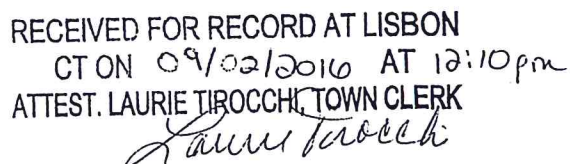 RECEIVED FOR RECORD AT LISBON
CT ON 09/02/2016 AT 12:10pm
ATTEST. LAURIE TIROCCHI, TOWN CLERK
Laurie Tirocchi